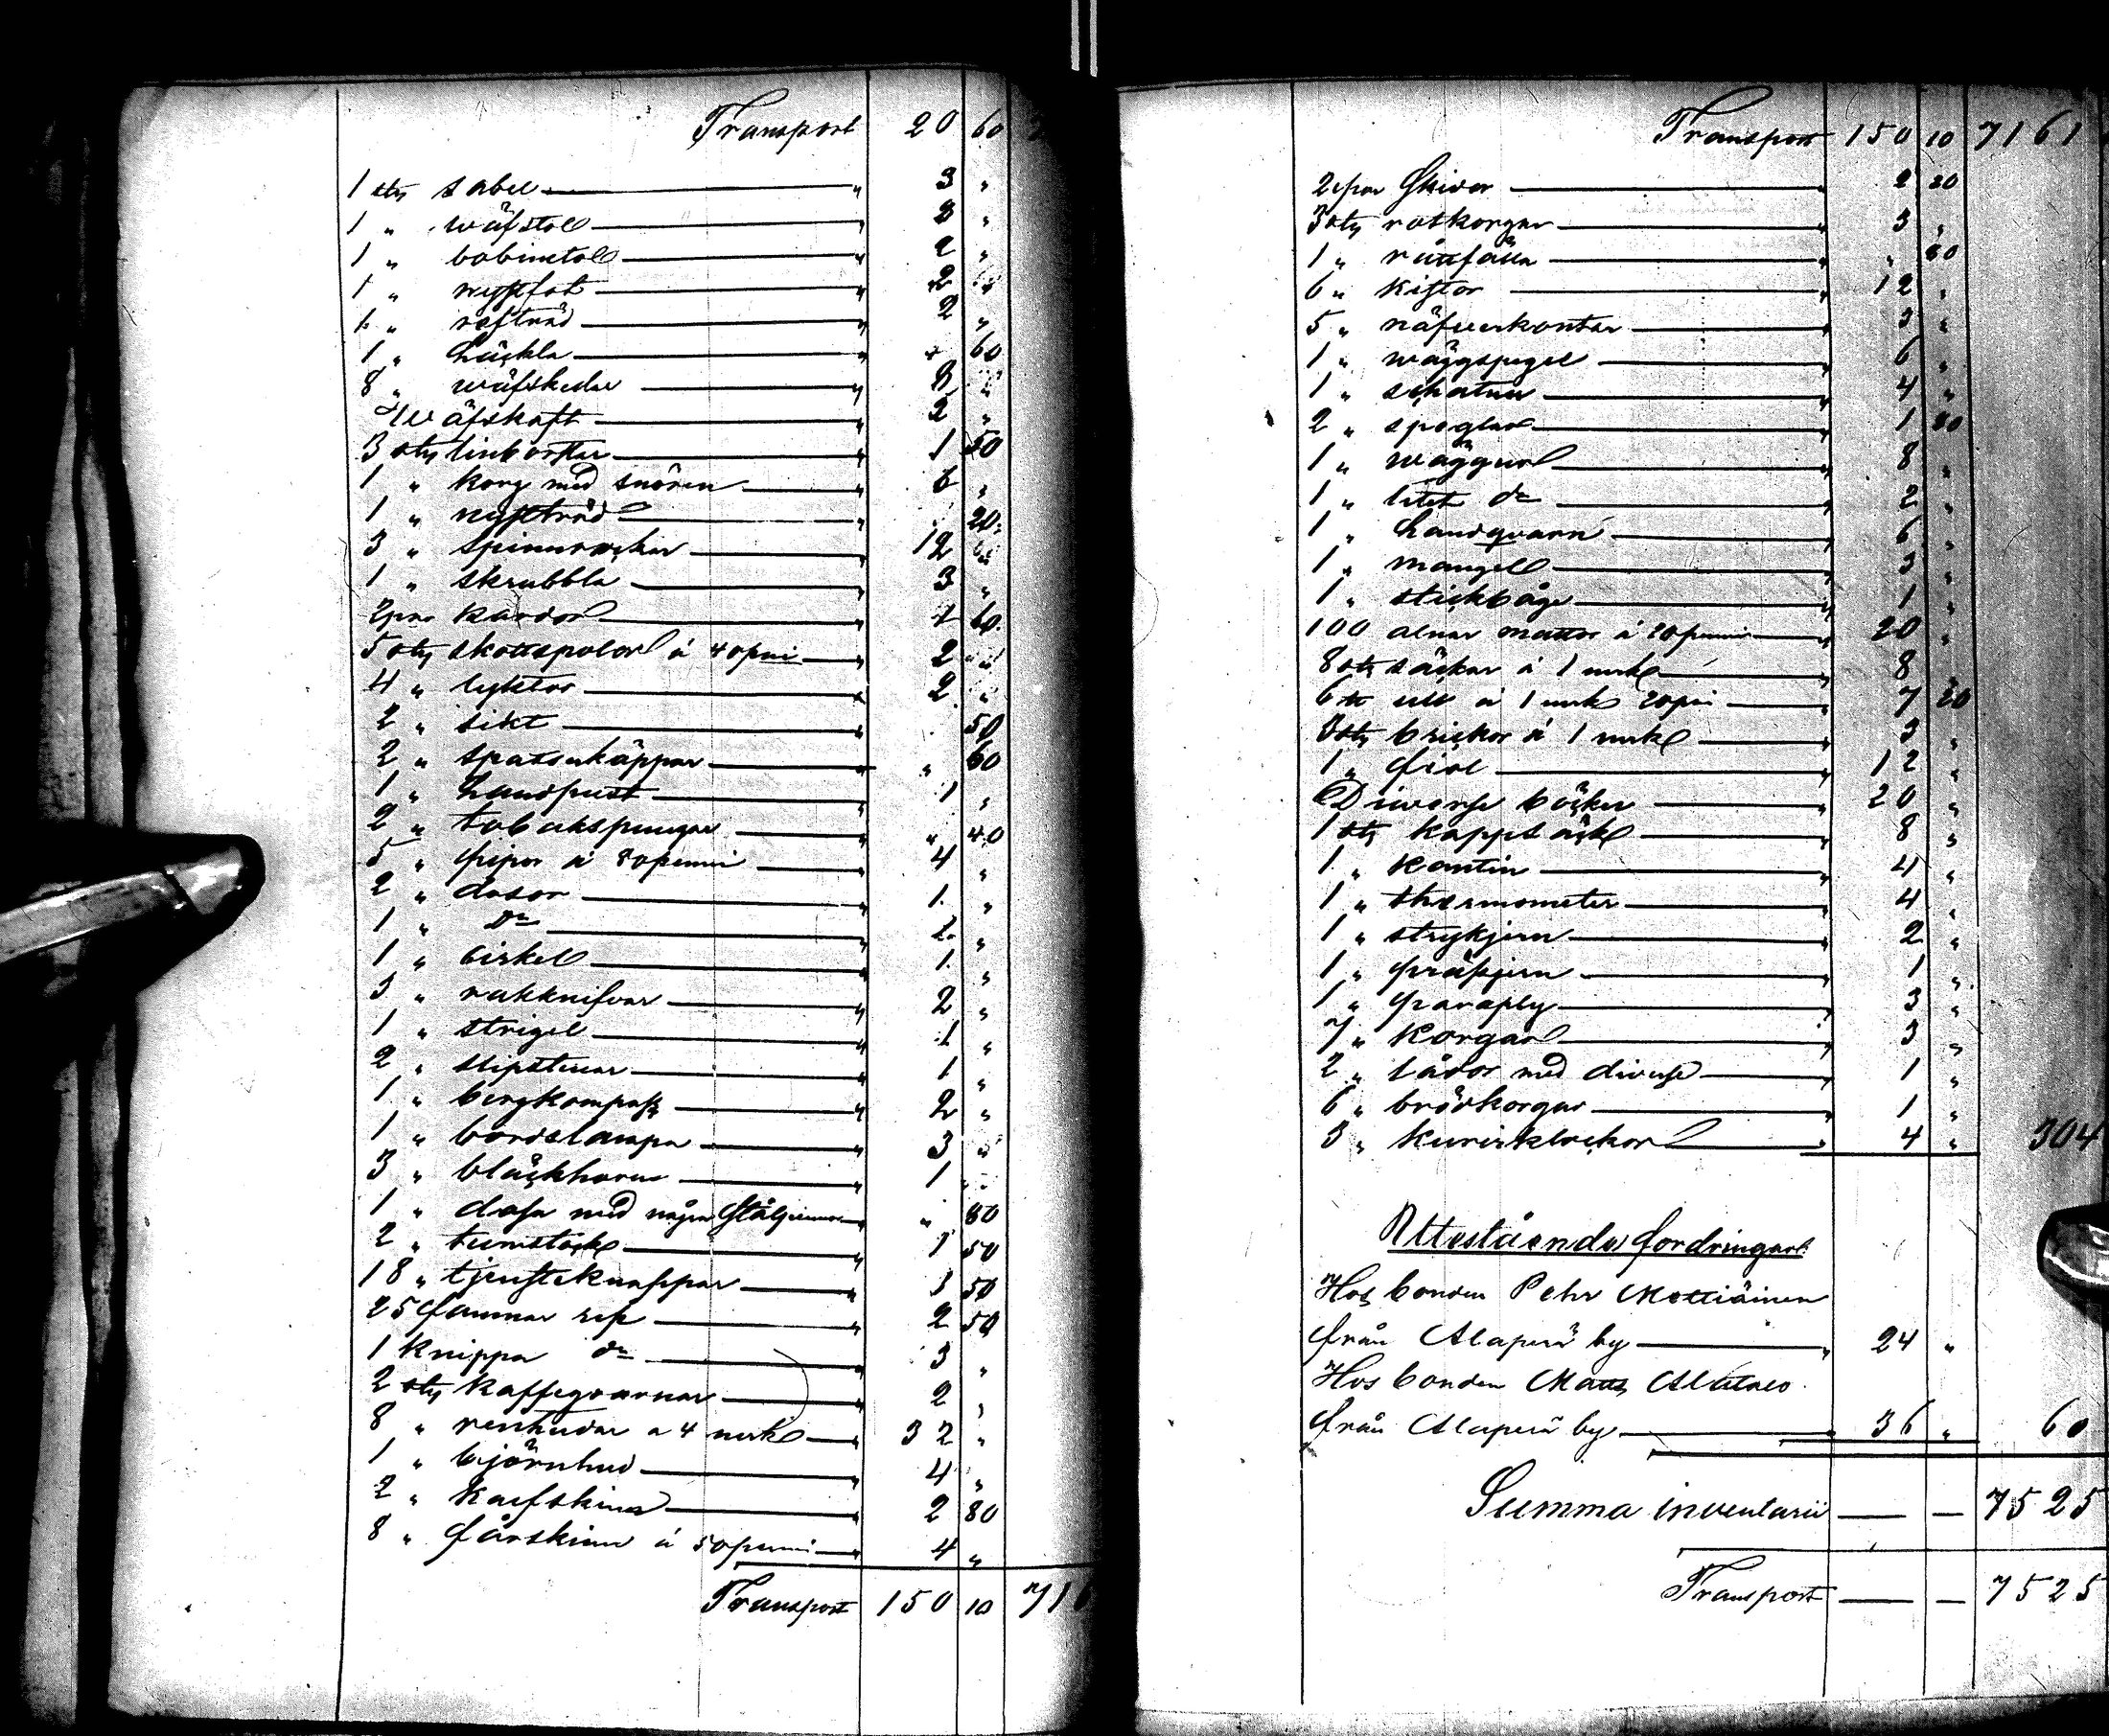 Transport 20 60
1 sty sabel " 3 "
1 " wäfstol " 3 "
1 " bobinstol " 2 "
1 " nystfot " 2 "
1 " refträd " 2 "
1 " häckla " " 60
8 " wäfskedar " 8 "
wäfskaft " 2 "
3 sty linborstar " 1 50
1 " korg med snören " 6 "
1 " nystträd " " 20
3 " spinnrockar " 12 "
1 " skrubbla " 3 "
2 par kardor " 1 60
5 sty skottspolar à 40 pni " 2 "
4 " lyktor " 2 "
2 " sikt " 50
2 " spatserkäppar " " 60
1 " handpust " 1 "
2 " tobakspungar " " 40
5 " pipor à 80 penni " 4 "
2 " dosor " 1 "
1 " do " 2 "
1 " cirkel " 1 "
3 " rakknifvar " 2 "
1 " strigel " 1 "
2 " slipstenar " 1 "
1 " bergkompass " 2 "
1 " bordslampa " 3 "
3 " bläckhorn " 1 "
1 " dosa med några stålpennor " " 80
2 " tumstock " 1 50
18 " tjensteknappar " 1 50
25 famnar rep " 2 50
1 knippa do " 3 "
2 sty kaffeqvarnar " 2 "
8 " renhudar a 4 mrk " 32 "
1 " björnhud " 4 "
2 " kalfskinn " 2 80
8 " fårskinn à 50 penni " 4 "
Transport 150 10 716
Transport 150 10 7161
2 par skidor " 2 20
3 sty rotkorgar " 3 "
1 " råttfälla " " 60
6 " kistor " 12 "
5 " näfverkontar " 3 "
1 " wäggspegel " 6 "
1 " schatull " 4 "
2 " speglar " 1 80
1 " wäggur " 8 "
1 " litet do " 2 "
1 " handqvarn " 6 "
1 " mangel " 3 "
1 " stickbåge " 1 "
100 alnar mattor à 20 penni " 20 "
8 sty säckar à 1 mrk " 8
6 ℔ ull à 1 mrk 20 pni " 7 20
3 sty brickor à 1 mrk " 3 "
1 " fiol " 12 "
Diverse böcker " 20 "
1 sty kappsäck " 8 "
1 " kantin " 4 "
1 " thermometer " 4 "
1 " strykjern " 2 "
1 " präsjern " 1 "
1 " paraply " 3 "
7 " korgar " 3 "
2 " lådor med diverse " 1 "
6 " brödkorgar " 1 "
3 " kurirklockor " 4 " 304
Utestående fordringar:
Hos bonden Pehr Mottiäinen
från Alaperä by " 24 "
Hos bonden Matts Alatalo
från Alaperä by " 36 " 60
Summa inventarii — — 7525
Transport — — 7525